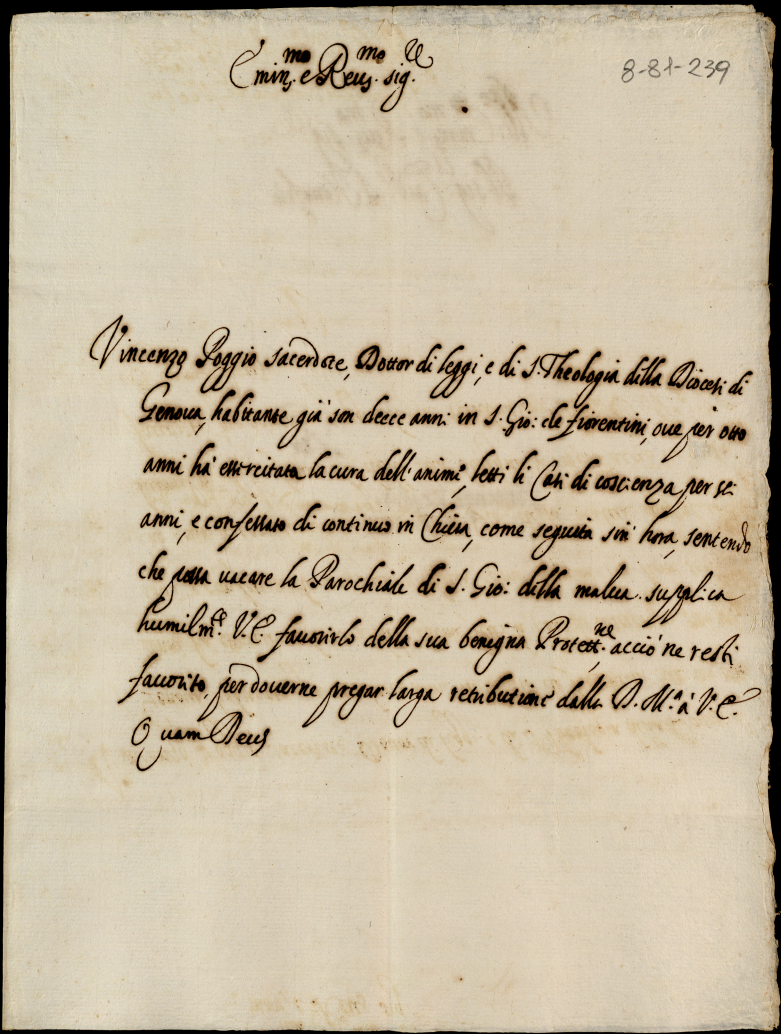 Emin.mo e Reu.mo sig.re
8-81-239
Vincenzo Poggio sacerdote, Dottor di leggi, e di S. Theologia della Diocesi di
Genoua, habitante già son diece anni in S. Gio: de fiorentini, oue per otto
anni hà essercitata la cura dell'anime, letti li Casi di coscienza per sei
anni, e confessato di continuo in Chiesa, come seguita sin' hora, sentendo
che possa uacare la Parochiale di S. Gio: della malua supplica
humilm.te V. E. fauorirlo della sua benigna Protett.ne acciò ne resti
fauorito, per douerne pregar larga retributione dalla D. M.a à V. E.
Quam Deus